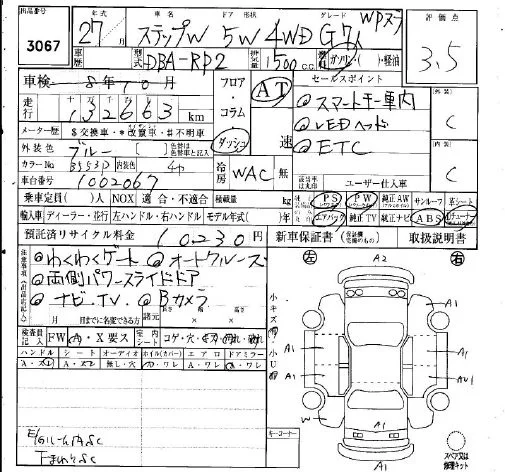 出品番号
3067
年式 27 車名 ステップW ドア 形状 5W 4WD グレード G
評価点
3.5
車歴 型式 DBA-RP2 排気量 1500 c.c. 燃料 ガソリン・( )・軽油
車検 8年10月
フロア・コラム・ダッシュ
AT
セールスポイント
走行 132663 km
@スマートキー車内
@LEDヘッド
@ETC
外装 C
内装 C
メーター歴 $交換車・*改竄車・#不明車
外装色 ブルー 色替は色替車と記入
カラーNo. B553P 内装色
冷房 WAC 速 無
車台番号 1002067
ユーザー仕入車
乗車定員( )人 NOX 適合・不適合 積載量 kg PS PW 純正AW サンルーフ 革シート
輸入車 ディーラー・並行 左ハンドル・右ハンドル モデル年式( )年 エアバック 純正TV 純正ナビ ABS
預託済リサイクル料金 10230円 新車保証書 取扱説明書
注意事項
@わくわくゲート @オートクルーズ
@両側パワースライドドア
@ナビ.TV. @Bカメラ
月 日までに名変できる方 諸元
検査員記入 FW X要ス 室内シート コゲ・穴
ハンドル シート オーディオ ホイル(カバー) エアロ ドアミラー
無し・穴
左 A2 右
小キズ
小U
A1
A1
A1
A1
A1
AU1
W
A1
A1
キーコーナー
スペア又は修理キット
下まわりSC